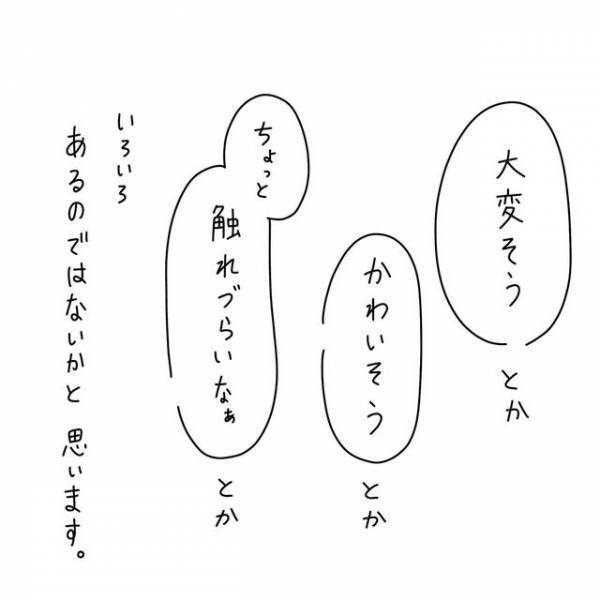 大変そう
とか
かわいそう
とか
ちょっと
触れづらいなぁ
とか
いろいろ
あるのではないかと 思います。